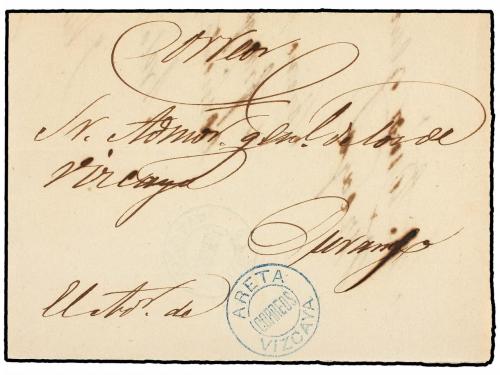 Correos
Sr. Admor. genl. de los de
Vizcaya
Durango
El Admor. de
ARETA
(CORREOS)
VIZCAYA